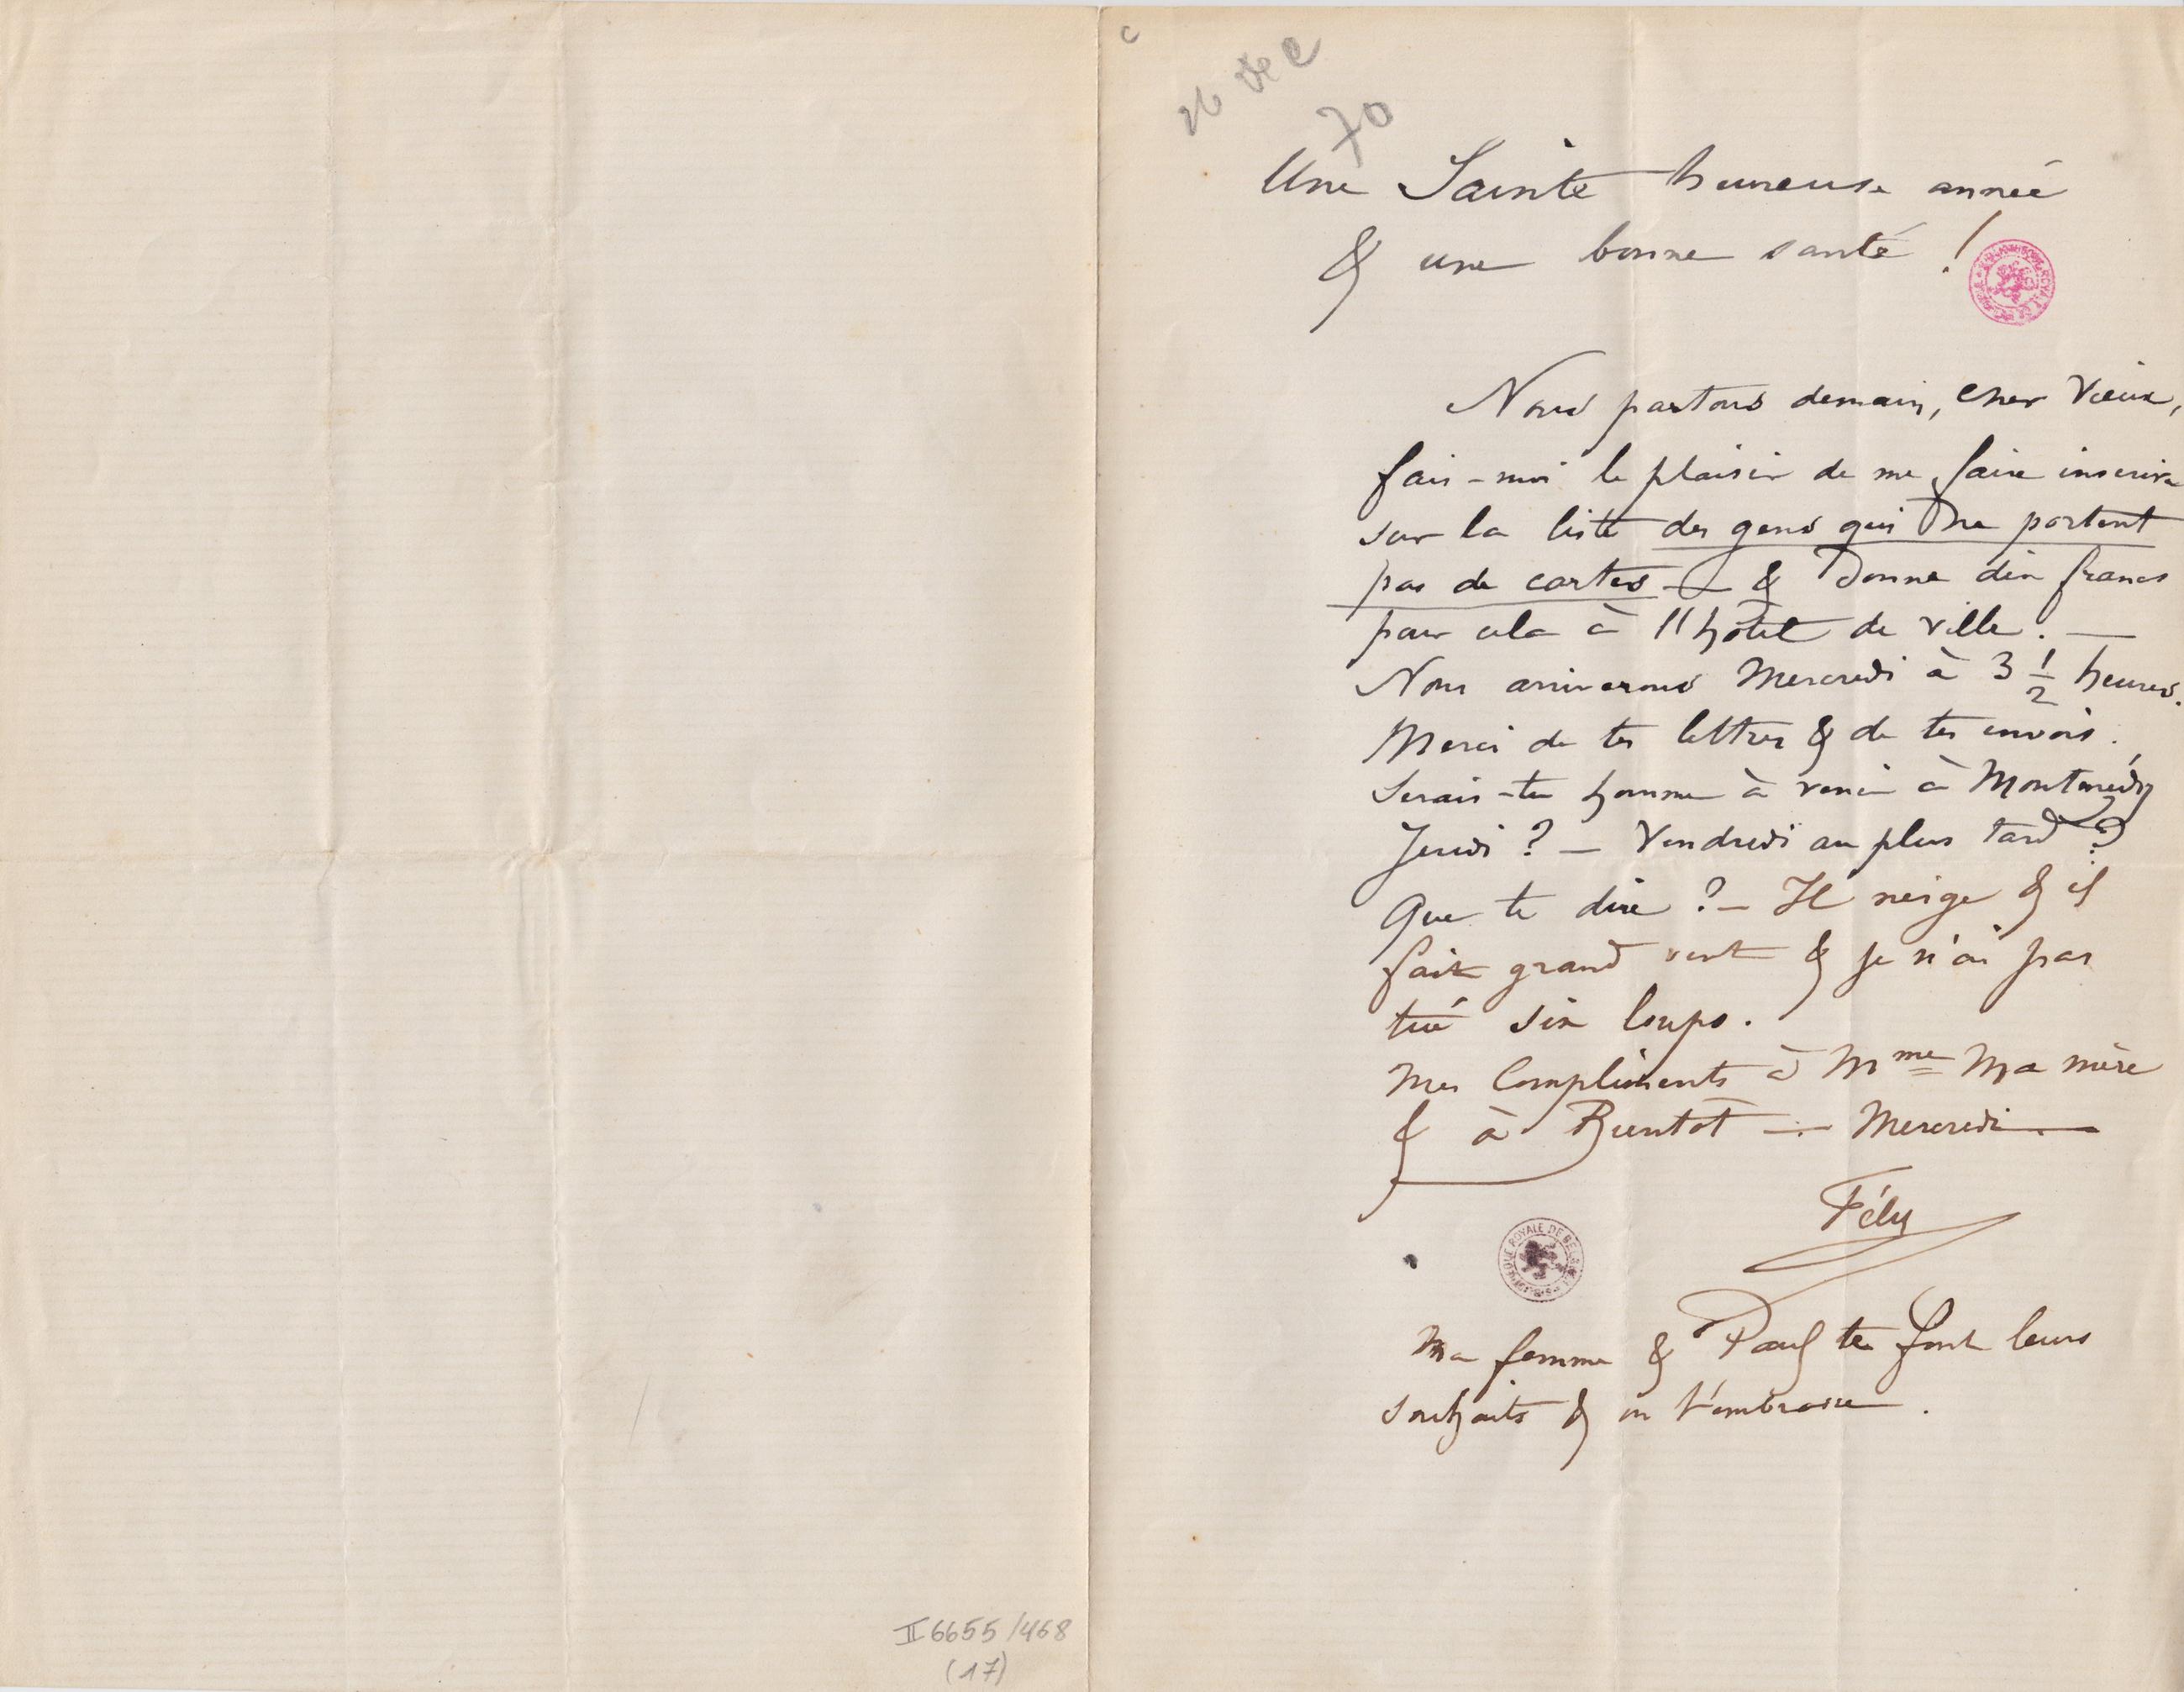 c
26 dec
70
Une Sainte heureuse année
& une bonne santé !
Nous partons demain, cher Vieux,
fais-moi le plaisir de me faire inscrire
sur la liste des gens qui ne portent
pas de cartes — & Donne dix francs
pour cela à l'hôtel de ville. —
Nous arriverons Mercredi à 3 1/2 heures.
Merci de tes lettres & de tes envois.
Serais-tu homme à venir à Montmédy
Jeudi ? — Vendredi au plus tard ?
Que te dire ? — Il neige & il
fait grand vent & je n'ai pas
tué six loups.
Mes Compliments à Mme Ma mère
& à Bientôt — Mercredi —
Fély
BIBLIOTHEQUE ROYALE DE BELGIQUE
Ma femme & Paul te font leurs
souhaits & on t'embrasse.
II 6655/468
(17)